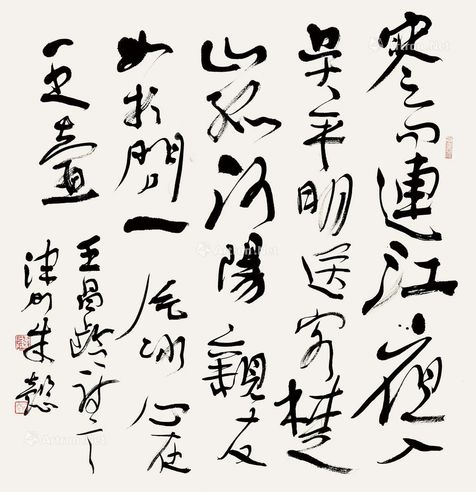 寒雨連江夜入
吳平明送客楚
山孤洛陽親友
如相問一片冰心在
玉壺
王昌齡詩
朱懿